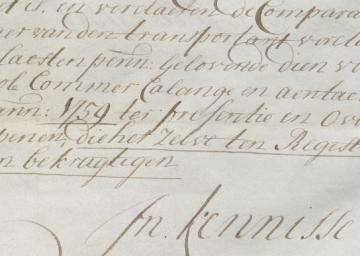 et is, en verclaeren de Compare
er van den transportant vercle
laesten penn: gelovende dien vo
ole Commer Calange en aentae
ann: 1759 ter presentie en Ove
penen, die het zelve ten Regist
n bekragtigen
In. kennisse